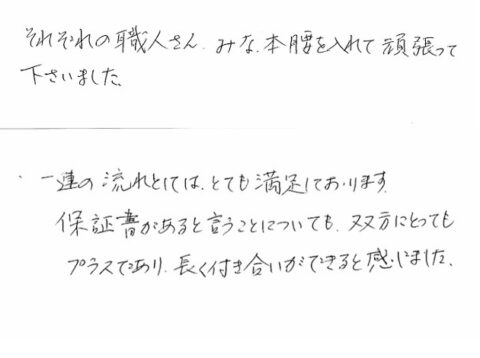 それぞれの職人さん、みな、本腰を入れて頑張って
下さいました。
・一連の流れとしては、とても満足しております。
保証書があると言うことについても、双方にとっても
プラスであり、長く付き合いができると感じました。